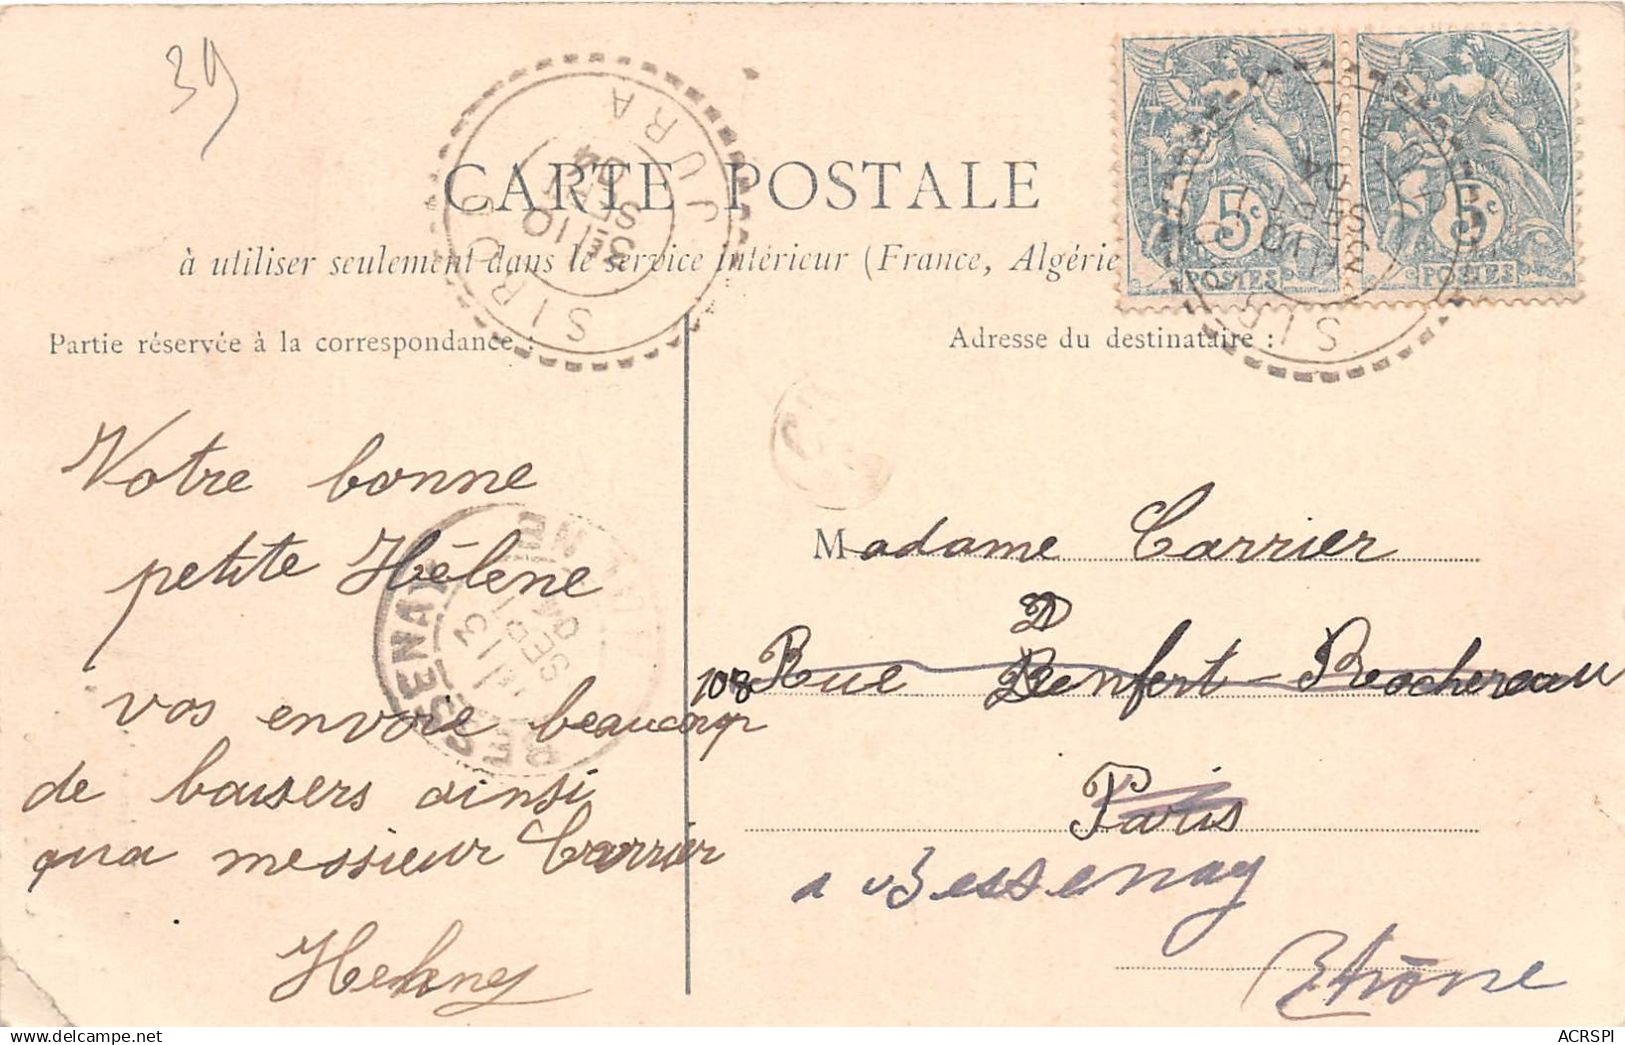 39
CARTE POSTALE
à utiliser seulement dans le service intérieur (France, Algérie
SIROD JURA
3E
10
SEPT
04
5c
POSTES
5c
POSTES
Partie réservée à la correspondance :
Adresse du destinataire :
Votre bonne
petite Hélène
vos envoie beaucoup
de baisers ainsi
qua messieur Carrier
BESSENAY
13
SEPT
04
Madame Carrier
108 Rue Denfert-Rochereau
Paris
a Bessenay
Rhône
ACRSPI